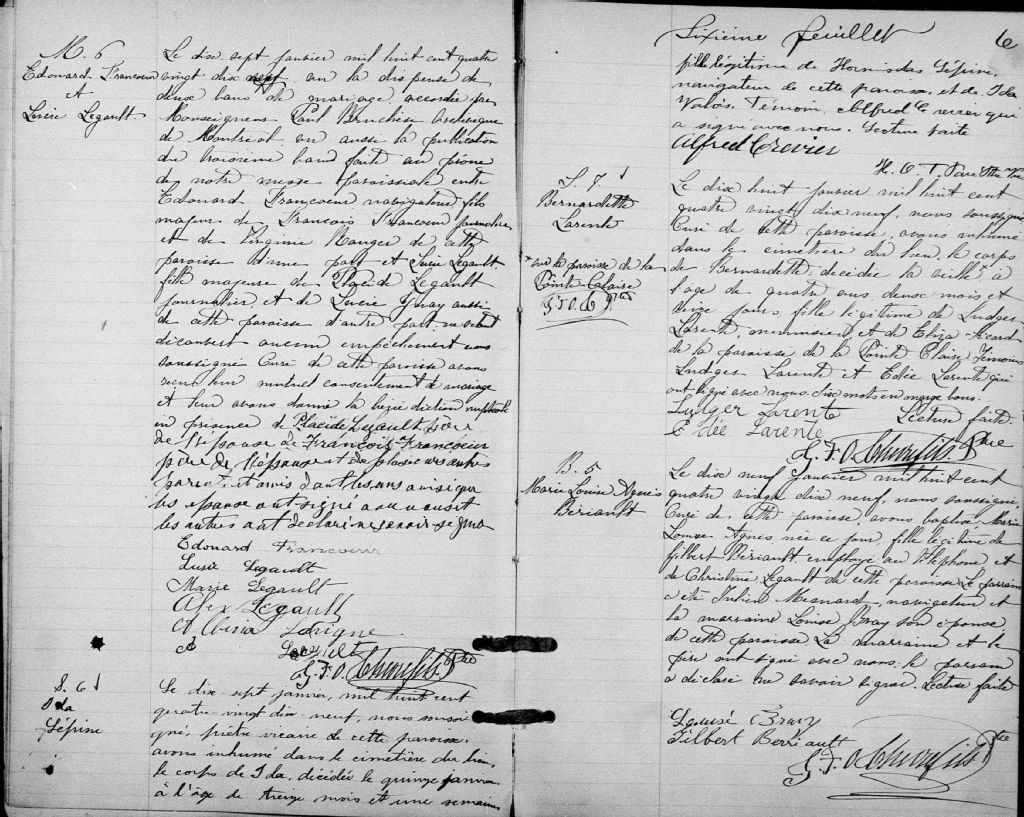 M. 6
Edouard Francoeur
et
Lucie Legault
Le dix sept janvier mil huit cent quatre
vingt dix neuf, vu la dispense de
deux bans de mariage accordée par
Monseigneur Paul Bruchési Archevêque
de Montréal vu aussi la publication
du troisième band fait au prône
de notre messe paroissiale entre
Edouard Francoeur navigateur fils
majeur de François Francoeur journalier
et de Virginie Ranger de cette
paroisse d'une part et Lucie Legault,
fille majeure de Placide Legault
journalier et de Lucie aussi
de cette paroisse d'autre part, ne s'étant
découvert aucun empêchement nous
soussigné Curé de cette paroisse avons
reçu leur mutuel consentement de mariage
et leur avons donné la bénédiction nuptiale
en présence de Placide Legault père
de l'épouse de François Francoeur
père de l'époux et de plusieurs autres
parents et amis dont les uns ainsi que
les époux ont signé avec nous et
les autres ont déclaré ne savoir signer
Edouard Francoeur
Lucie Legault
Marie Legault
Alex Legault
Lavigne
et
J. F. O. Ptre
S. 6
Ida
Lépine
Le dix-sept janvier, mil huit cent
quatre-vingt dix-neuf, nous soussi
gné, prêtre vicaire de cette paroisse,
avons inhumé dans le cimetière du lieu,
le corps de Ida, décédée le quinze janvier
à l'âge de treize mois et une semaine
Sixième feuillet
6
fille légitime de Hormisdas Lépine,
navigateur de cette paroisse, et de Ida
Valois. Témoin Alfred Crevier qui
a signé avec nous. Lecture faite
Alfred Crevier
S. 7
Bernardette
Larente
* sur la paroisse de la
Pointe-Claire
J F O. C Ptre
Le dix huit janvier mil huit cent
quatre vingt dix neuf, nous soussigné
Curé de cette paroisse, avons inhumé
dans le cimetière du lieu, le corps
de Bernardette, décédée la veille * à
l'age de quatre ans, deux mois et
seize jours, fille légitime de Ludger
Larente, menuisier et de Eliza Ricard
de la paroisse de la Pointe Claire Témoins
Ludger Larente et Edée Larente qui
ont signé avec nous. Six mots en marge bons.
Ludger Larente Lecture faite
Edée Larente
J. F. O. Ptre
B. 5
Marie Louise Agnès
Bériault
Le dix neuf janvier mil huit cent
quatre vingt dix neuf, nous soussigné
Curé de cette paroisse, avons baptisé Marie
Louise Agnès née ce jour, fille légitime de
Gilbert Bériault, employé au téléphone, et
de Christine Legault de cette paroisse Le parrain
a été Julien Mesnard, navigateur et
la marraine Louise Bray son épouse
de cette paroisse La marraine et le
père ont signé avec nous, le parrain
a déclaré ne savoir signer. Lecture faite
Louise Bray
Gilbert Berriault
J. F. O. Ptre